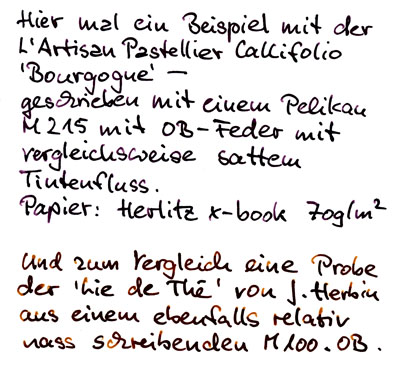 Hier mal ein Beispiel mit der
L'Artisan Pastellier Callifolio
'Bourgogne' –
geschrieben mit einem Pelikan
M215 mit OB-Feder mit
vergleichsweise sattem
Tintenfluss.
Papier: Herlitz x-book 70g/m²
Und zum Vergleich eine Probe
der 'Lie de Thé' von J. Herbin
aus einem ebenfalls relativ
nass schreibenden M100. OB.